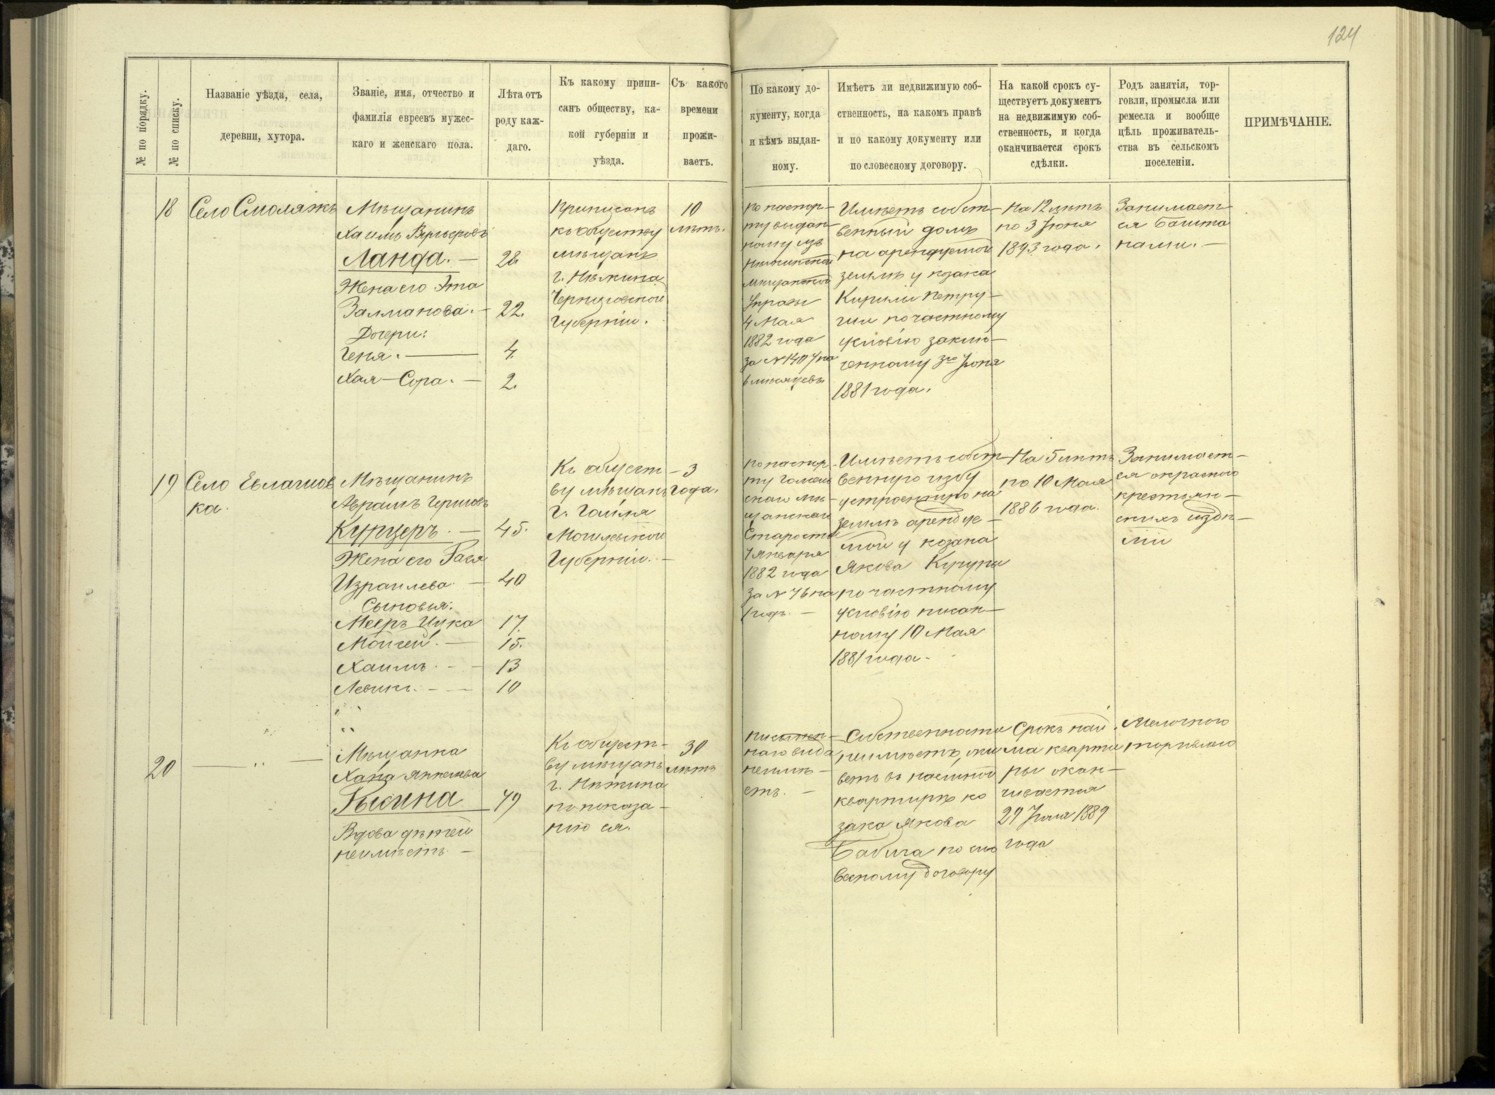 124
№ по порядку.
№ по списку.
Названіе уѣзда, села,
деревни, хутора.
Званіе, имя, отчество и
фамилія евреевъ мужес-
каго и женскаго пола.
Лѣта отъ
роду каж-
даго.
Къ какому припи-
санъ обществу, ка-
кой губерніи и
уѣзда.
Съ какого
времени
прожи-
ваетъ.
По какому до-
кументу, когда
и кѣмъ выдан-
ному.
Имѣетъ ли недвижимую соб-
ственность, на какомъ правѣ
и по какому документу или
по словесному договору.
На какой срокъ су-
ществуетъ документъ
на недвижимую соб-
ственность, и когда
оканчивается срокъ
сдѣлки.
Родъ занятія, тор-
говли, промысла или
ремесла и вообще
цѣль проживатель-
ства въ сельскомъ
поселеніи.
ПРИМѢЧАНІЕ.
18
Село Смоляжъ
Мѣщанинъ
Хаимъ
Ланда. —
28.
Жена его Эта
Залманова. —
22.
Дочери:
Геня. —
4.
Хая-Сора. —
2.
Приписанъ
къ обществу
мѣщанъ
г. Нѣжина
Черниговской
Губерніи.
10
лѣтъ.
По паспор-
ту выдан-
ному изъ
Нѣжинской
мѣщанской
Управы
4 Мая
1882 года
Имѣетъ собст-
венный домъ
на арендуемой
землѣ у козака
Кирилы Петру-
по частному
условію заклю-
ченному 3го Іюня
1881 года.
На 12 лѣтъ
по 3 Іюня
1893 года.
Занимает-
ся башта
нами. —
19
Село Евлашов
ка.
Мѣщанинъ
Абрамъ
Курцеръ. —
45.
Жена его Бася
Израилева —
40
Сыновья:
Мееръ Ицка
17.
Мойсей. —
15.
Хаимъ. —
13
10
Къ общест-
ву мѣщанъ
г. Гомля
Могилевской
Губерніи. —
3
года.
По паспор-
ту Гомель
скаго мѣ-
щанскаго
Старосты
7 Января
1882 года
годъ. —
Имѣетъ собст-
венную избу
устроенную на
землѣ арендуе-
мой у козака
Якова
по частному
условію писан-
ному 10 Мая
1881 года.
На 5 лѣтъ
по 10 Мая
1886 года.
Занимает-
ся окраскою
крестьян-
скихъ издѣ-
лій
20
— „ —
Мѣщанка
Хана Янкелева
49
Вдова дѣтей
неимѣетъ —
Къ общест-
ву мѣщанъ
г. Нѣжина
по показа-
нію ея.
30
лѣтъ
Письмен-
наго вида
неимѣ-
етъ. —
Собственности
неимѣетъ, жи
ветъ въ наемной
квартирѣ ко
зака Якова
по сло
весному договору
Срокъ най
ма кварти
ры окан-
чивается
29 Іюля 1889
года
Мелочною
торговлею